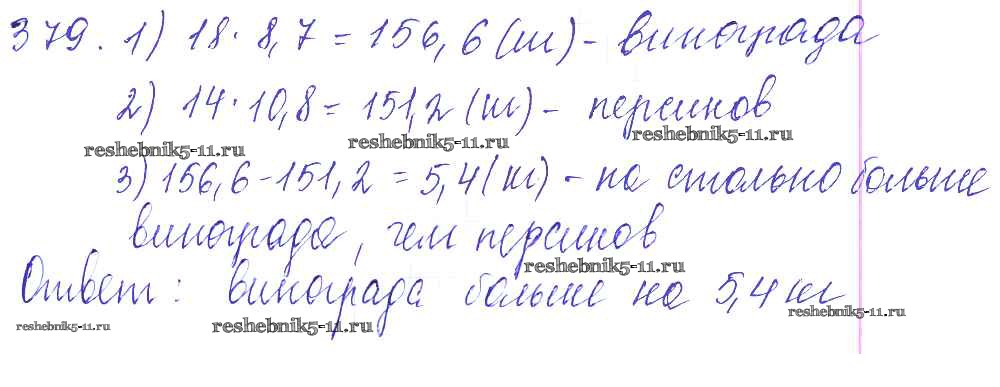 379. 1) 18 · 8,7 = 156,6 (кг) - винограда
2) 14 · 10,8 = 151,2 (кг) - персиков
reshebnik5-11.ru reshebnik5-11.ru reshebnik5-11.ru
3) 156,6 - 151,2 = 5,4 (кг) - на столько больше
винограда, чем персиков
reshebnik5-11.ru
Ответ: винограда больше на 5,4 кг
reshebnik5-11.ru reshebnik5-11.ru reshebnik5-11.ru